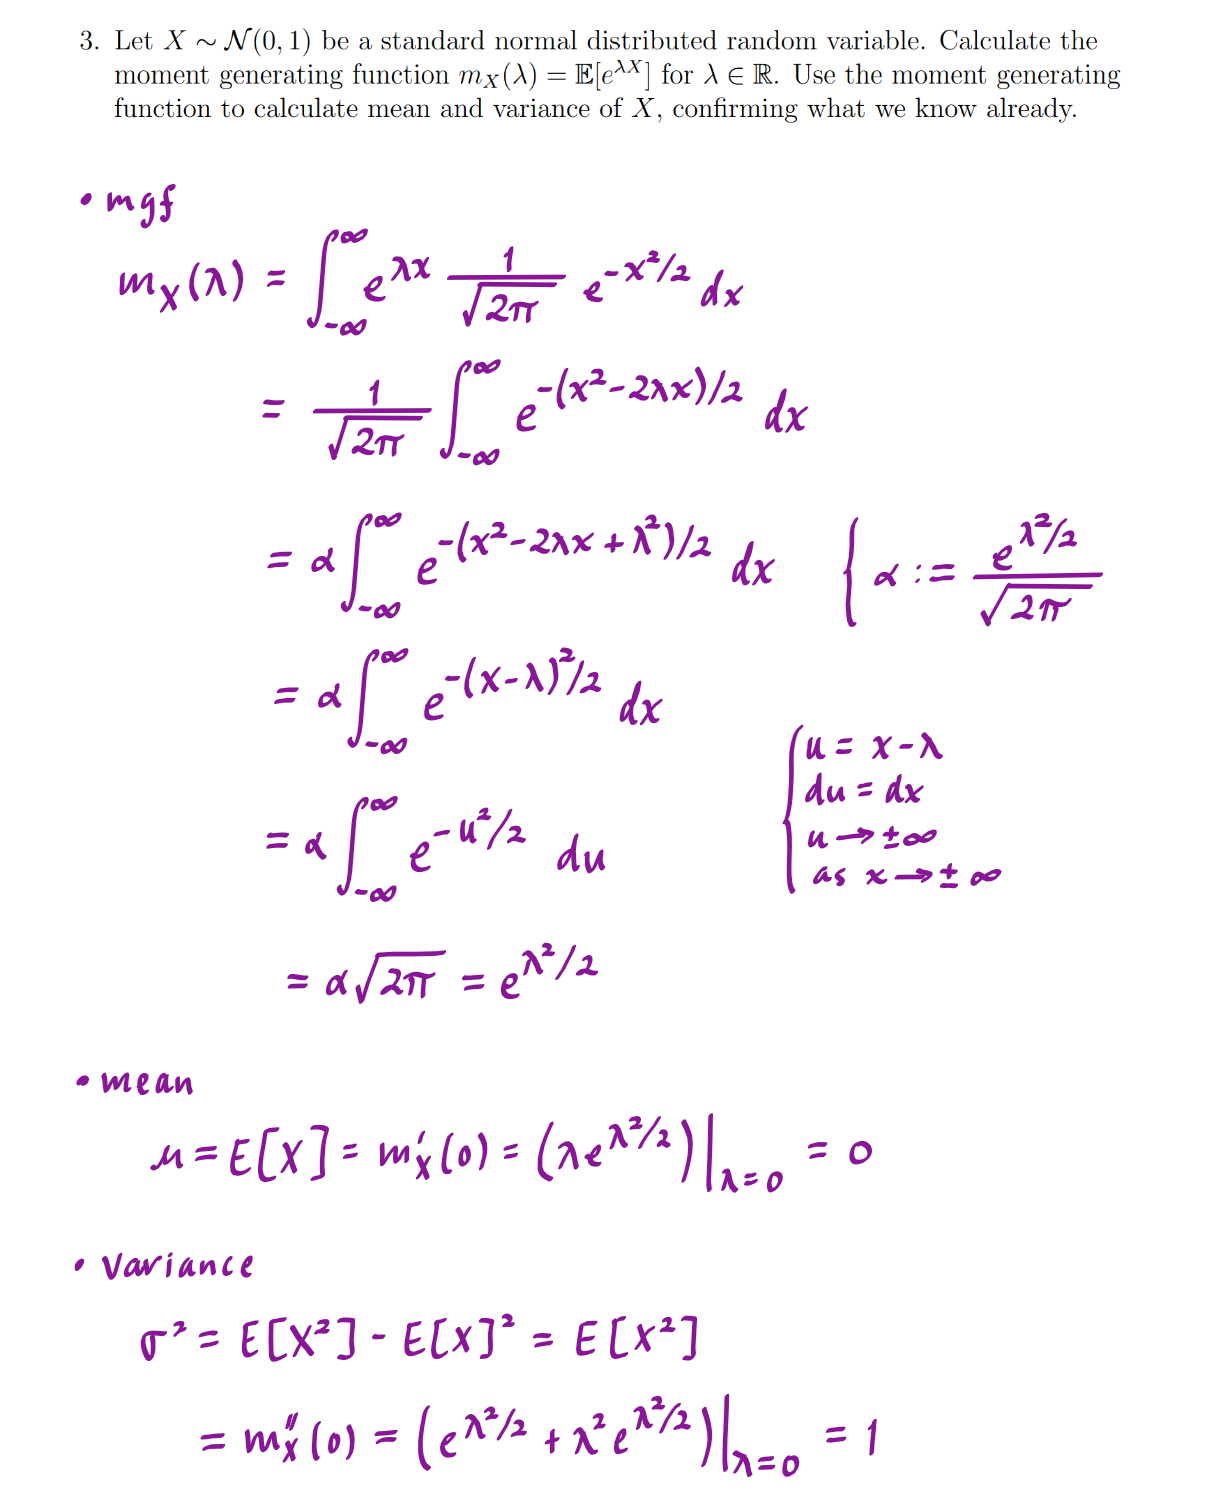 3. Let X ∼ 𝒩(0, 1) be a standard normal distributed random variable. Calculate the
moment generating function m_X(λ) = 𝔼[e^{λX}] for λ ∈ ℝ. Use the moment generating
function to calculate mean and variance of X, confirming what we know already.
• mgf
m_X(λ) = ∫_{-∞}^{∞} e^{λx} \frac{1}{√{2π}} e^{-x²/2} dx
= \frac{1}{√{2π}} ∫_{-∞}^{∞} e^{-(x²-2λx)/2} dx
= α ∫_{-∞}^{∞} e^{-(x²-2λx+λ²)/2} dx { α := \frac{e^{λ²/2}}{√{2π}}
= α ∫_{-∞}^{∞} e^{-(x-λ)²/2} dx
{ u = x-λ
du = dx
u → ±∞
as x → ±∞
= α ∫_{-∞}^{∞} e^{-u²/2} du
= α√{2π} = e^{λ²/2}
• mean
μ = E[X] = m'_X(0) = (λe^{λ²/2})|_{λ=0} = 0
• variance
σ² = E[X²] - E[X]² = E[X²]
= m''_X(0) = (e^{λ²/2} + λ²e^{λ²/2})|_{λ=0} = 1